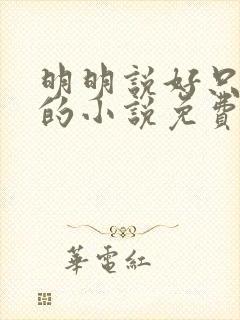 明明說好只
的小說免費
華電紅